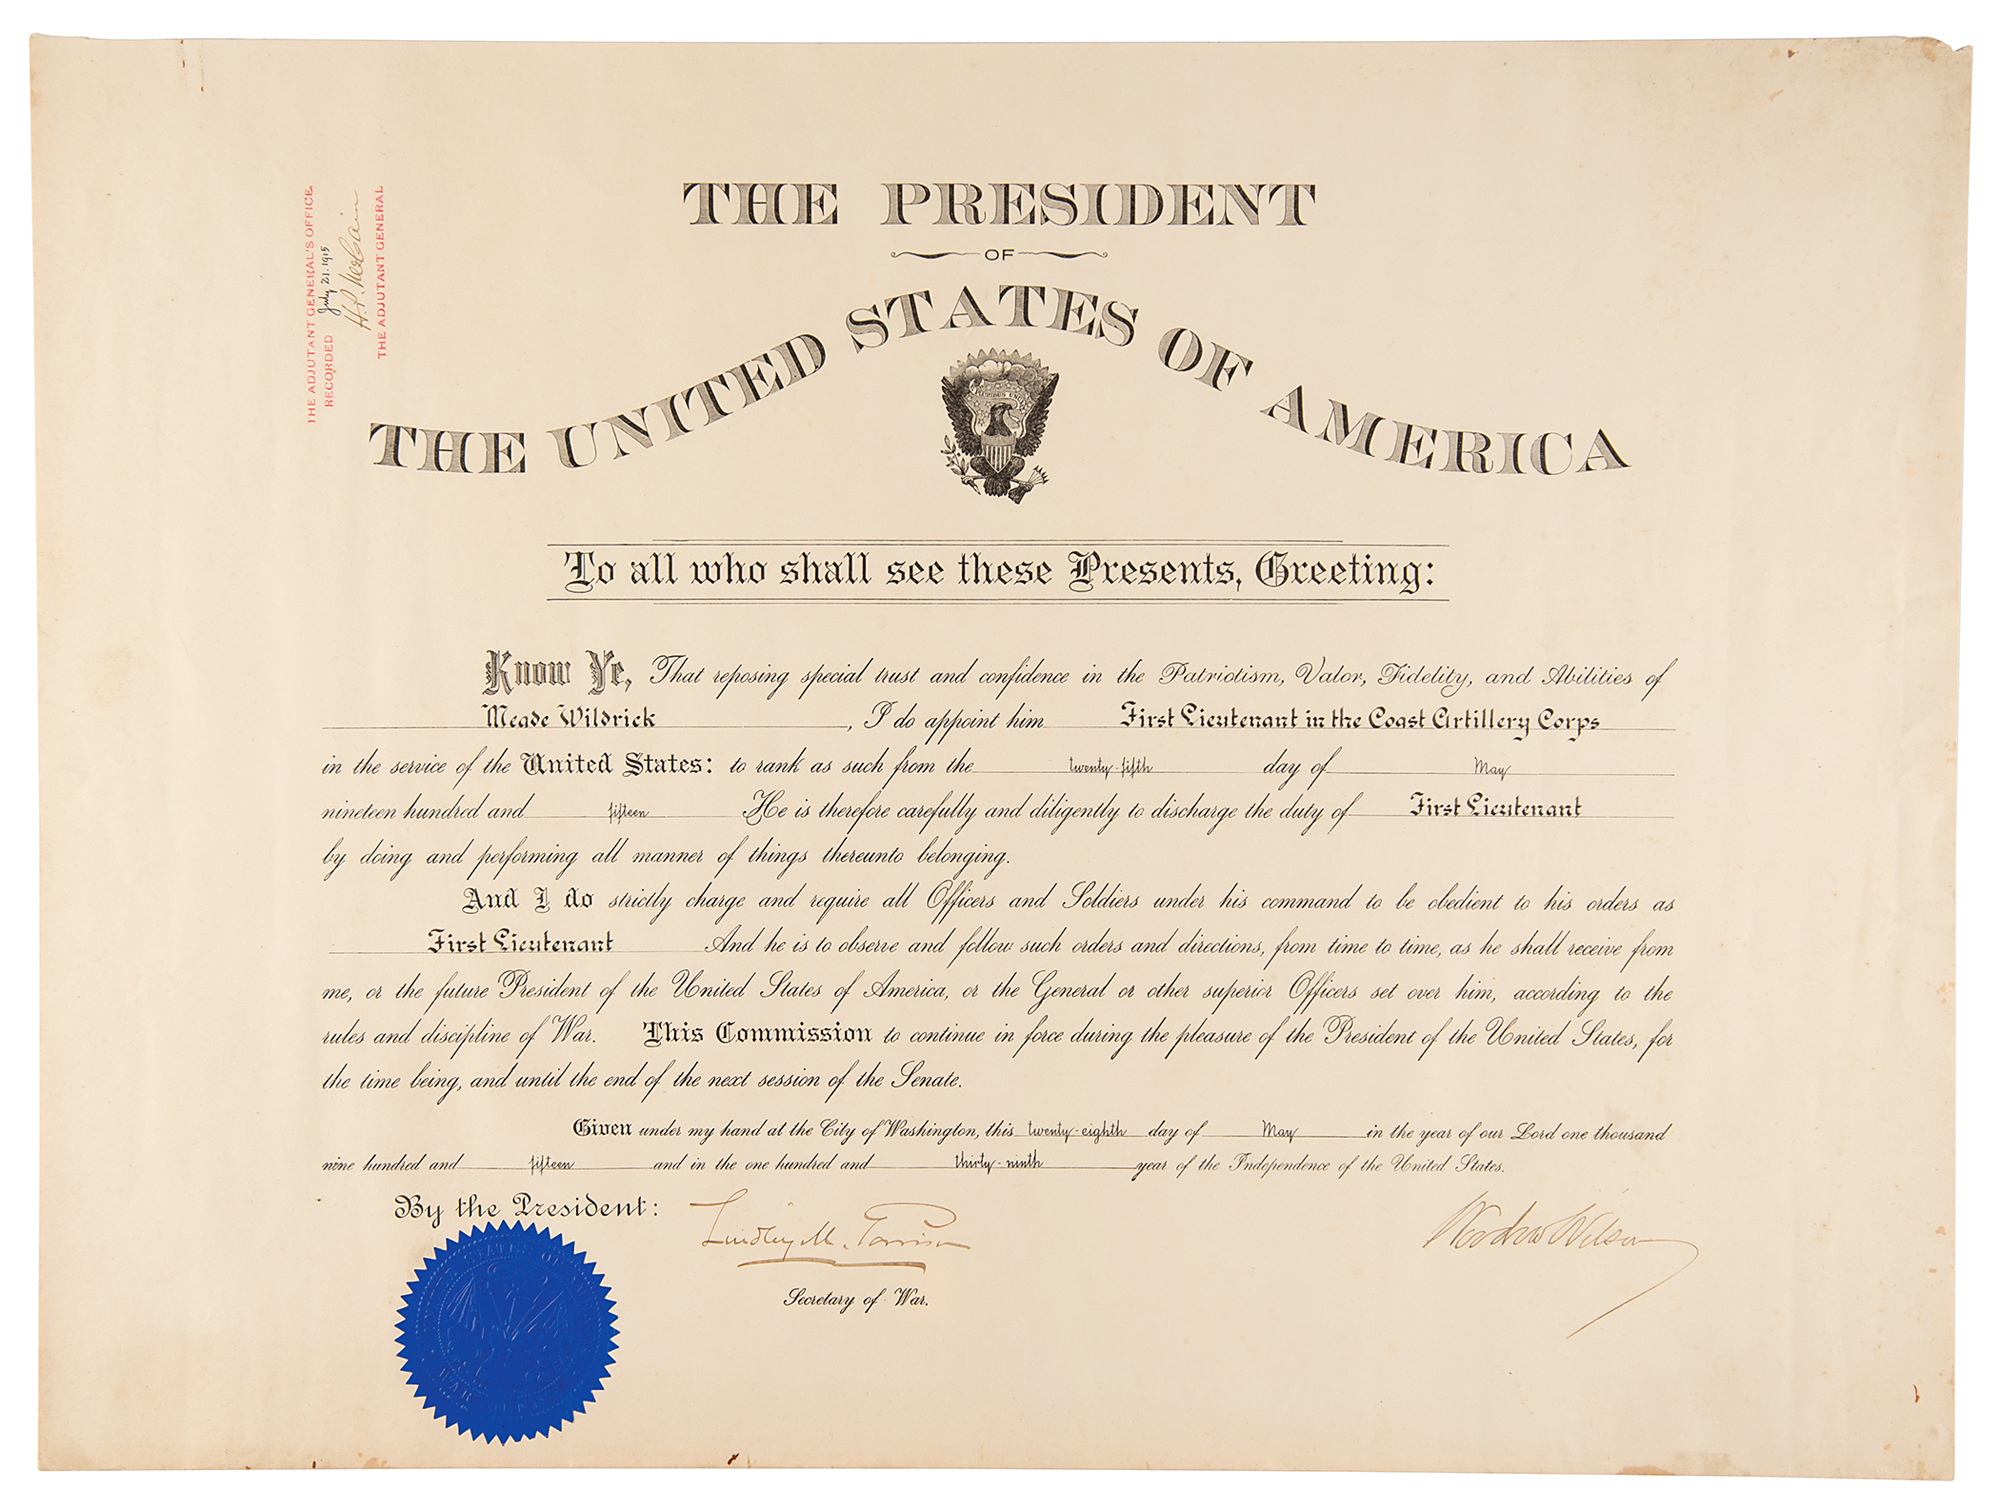 THE ADJUTANT GENERAL'S OFFICE.
RECORDED July 21, 1915
THE ADJUTANT GENERAL
THE PRESIDENT
OF
THE UNITED STATES OF AMERICA
PLURIBUS UNUM
To all who shall see these Presents, Greeting:
Know Ye, That reposing special trust and confidence in the Patriotism, Valor, Fidelity, and Abilities of
Meade Wildrick , I do appoint him First Lieutenant in the Coast Artillery Corps
in the service of the United States: to rank as such from the twenty-fifth day of May
nineteen hundred and fifteen He is therefore carefully and diligently to discharge the duty of First Lieutenant
by doing and performing all manner of things thereunto belonging.
And I do strictly charge and require all Officers and Soldiers under his command to be obedient to his orders as
First Lieutenant And he is to observe and follow such orders and directions, from time to time, as he shall receive from
me, or the future President of the United States of America, or the General or other superior Officers set over him, according to the
rules and discipline of War. This Commission to continue in force during the pleasure of the President of the United States, for
the time being, and until the end of the next session of the Senate.
Given under my hand at the City of Washington, this twenty-eighth day of May in the year of our Lord one thousand
nine hundred and fifteen and in the one hundred and thirty-ninth year of the Independence of the United States.
By the President:
Lindley M. Garrison
Woodrow Wilson
Secretary of War.